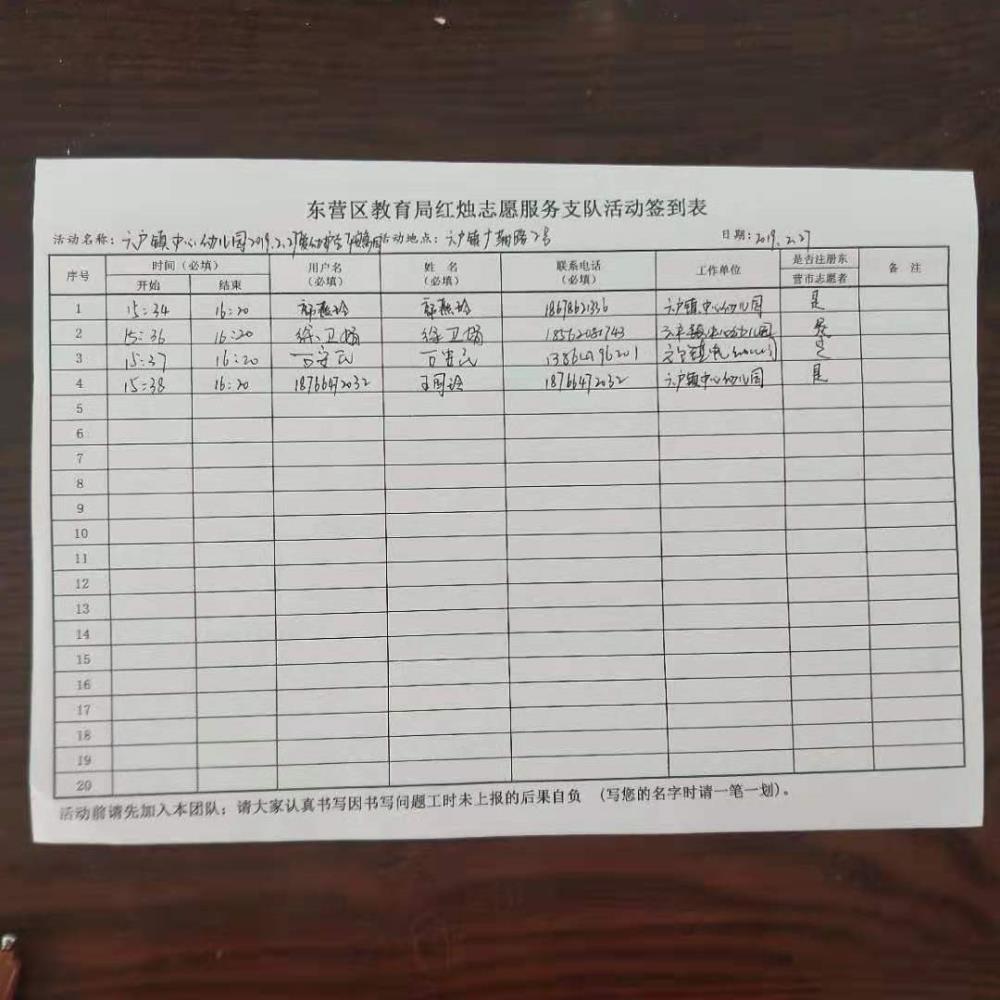 东营区教育局红烛志愿服务支队活动签到表
活动名称：六户镇中心幼儿园2019.2.27 活动地点：六户镇 路2号 日期：2019.2.27
序号 时间（必填） 用户名（必填） 姓名（必填） 联系电话（必填） 工作单位 是否注册东营市志愿者 备注
开始 结束
1 15:34 16:20 燕玲 燕玲 18678621336 六户镇中心幼儿园 是
2 15:36 16:20 徐卫娟 徐卫娟 18562081743 幼儿园 是
3 15:37 16:20 是
4 15:38 16:20 18766472032 王国玲 18766472032 六户镇中心幼儿园 是
5
6
7
8
9
10
11
12
13
14
15
16
17
18
19
20
活动前请先加入本团队；请大家认真书写因书写问题工时未上报的后果自负 （写您的名字时请一笔一划）。